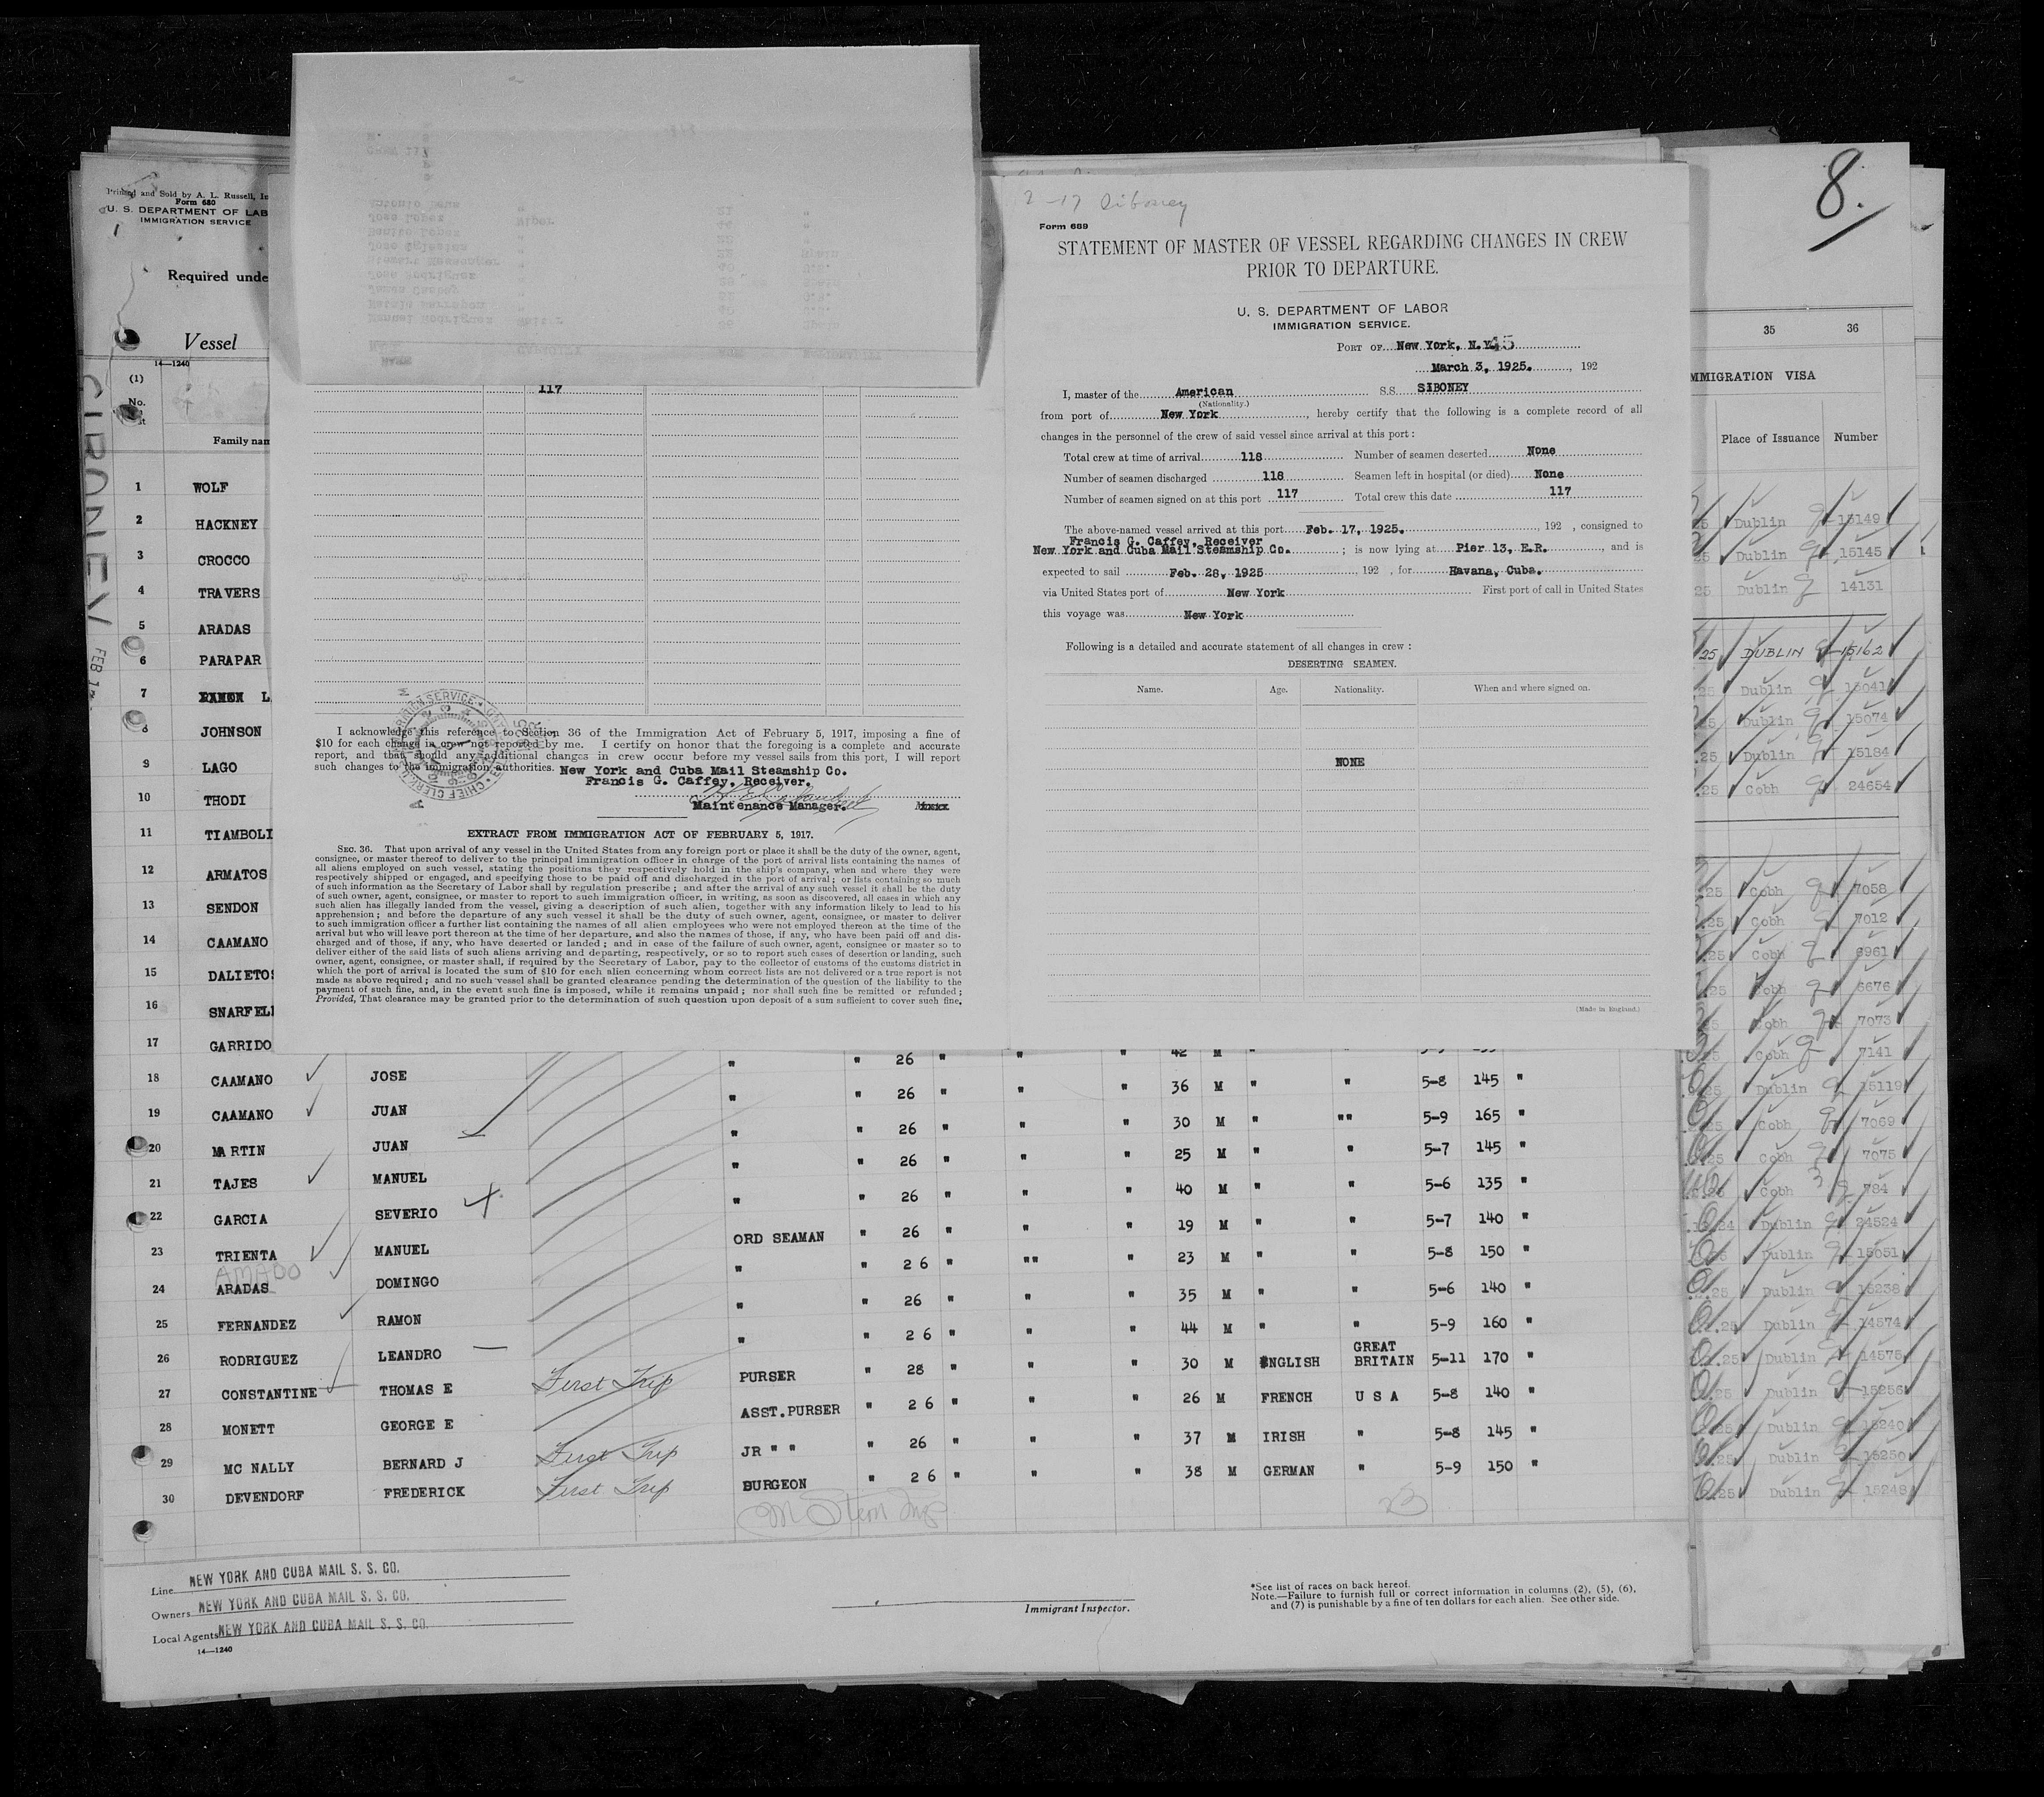 8.
Printed and Sold by A. L. Russell, In
Form 680
U. S. DEPARTMENT OF LAB
IMMIGRATION SERVICE
Required unde
Vessel
14—1240
(1)
No.
Family nam
SIBONEY
1 WOLF
2 HACKNEY
3 CROCCO
4 TRAVERS
5 ARADAS
6 PARAPAR
7
8 JOHNSON
9 LAGO
10 THODI
11 TIAMBOLI
12 ARMATOS
13 SENDON
14 CAAMANO
15 DALIETOS
16 SNARFELI
17 GARRIDO " 26 " " " 42 M "
18 CAAMANO JOSE " " 26 " " " 36 M " " 5-8 145 "
19 CAAMANO JUAN " " 26 " " " 30 M " "" 5-9 165 "
20 MARTIN JUAN " " 26 " " " 25 M " " 5-7 145 "
21 TAJES MANUEL " " 26 " " " 40 M " " 5-6 135 "
22 GARCIA SEVERIO ORD SEAMAN " 26 " " " 19 M " " 5-7 140 "
23 TRIENTA MANUEL " " 2 6 " "" " 23 M " " 5-8 150 "
AMADO
24 ARADAS DOMINGO " " 26 " " " 35 M " " 5-6 140 "
25 FERNANDEZ RAMON " " 2 6 " " " 44 M " " 5-9 160 "
26 RODRIGUEZ LEANDRO
27 CONSTANTINE THOMAS E First Trip PURSER " 28 " " " 30 M ENGLISH GREAT BRITAIN 5-11 170 "
28 MONETT GEORGE E ASST.PURSER " 2 6 " " " 26 M FRENCH U S A 5-8 140 "
29 MC NALLY BERNARD J First Trip JR " " " 26 " " " 37 M IRISH " 5-8 145 "
30 DEVENDORF FREDERICK First Trip BURGEON " 2 6 " " " 38 M GERMAN " 5-9 150 "
23
Line NEW YORK AND CUBA MAIL S. S. CO.
Owners NEW YORK AND CUBA MAIL S. S. CO.
Local Agents NEW YORK AND CUBA MAIL S. S. CO.
14—1240
Immigrant Inspector.
*See list of races on back hereof.
Note.—Failure to furnish full or correct information in columns (2), (5), (6),
and (7) is punishable by a fine of ten dollars for each alien. See other side.
117
I acknowledge this reference to Section 36 of the Immigration Act of February 5, 1917, imposing a fine of
$10 for each change in crew not reported by me. I certify on honor that the foregoing is a complete and accurate
report, and that should any additional changes in crew occur before my vessel sails from this port, I will report
such changes to the immigration authorities.
New York and Cuba Mail Steamship Co.
Francis G. Caffey, Receiver.
Maintenance Manager.
EXTRACT FROM IMMIGRATION ACT OF FEBRUARY 5, 1917.
SEC. 36. That upon arrival of any vessel in the United States from any foreign port or place it shall be the duty of the owner, agent,
consignee, or master thereof to deliver to the principal immigration officer in charge of the port of arrival lists containing the names of
all aliens employed on such vessel, stating the positions they respectively hold in the ship's company, when and where they were
respectively shipped or engaged, and specifying those to be paid off and discharged in the port of arrival; or lists containing so much
of such information as the Secretary of Labor shall by regulation prescribe; and after the arrival of any such vessel it shall be the duty
of such owner, agent, consignee, or master to report to such immigration officer, in writing, as soon as discovered, all cases in which any
such alien has illegally landed from the vessel, giving a description of such alien, together with any information likely to lead to his
apprehension; and before the departure of any such vessel it shall be the duty of such owner, agent, consignee, or master to deliver
to such immigration officer a further list containing the names of all alien employees who were not employed thereon at the time of the
arrival but who will leave port thereon at the time of her departure, and also the names of those, if any, who have been paid off and dis-
charged and of those, if any, who have deserted or landed; and in case of the failure of such owner, agent, consignee or master so to
deliver either of the said lists of such aliens arriving and departing, respectively, or so to report such cases of desertion or landing, such
owner, agent, consignee, or master shall, if required by the Secretary of Labor, pay to the collector of customs of the customs district in
which the port of arrival is located the sum of $10 for each alien concerning whom correct lists are not delivered or a true report is not
made as above required; and no such vessel shall be granted clearance pending the determination of the question of the liability to the
payment of such fine, and, in the event such fine is imposed, while it remains unpaid; nor shall such fine be remitted or refunded;
Provided, That clearance may be granted prior to the determination of such question upon deposit of a sum sufficient to cover such fine.
2-17 Siboney
Form 689
STATEMENT OF MASTER OF VESSEL REGARDING CHANGES IN CREW
PRIOR TO DEPARTURE.
U. S. DEPARTMENT OF LABOR
IMMIGRATION SERVICE.
PORT OF New York, N.Y. 45
March 3, 1925. , 192
I, master of the American S.S. SIBONEY
(Nationality.)
from port of New York, hereby certify that the following is a complete record of all
changes in the personnel of the crew of said vessel since arrival at this port:
Total crew at time of arrival 118 Number of seamen deserted None
Number of seamen discharged 118 Seamen left in hospital (or died) None
Number of seamen signed on at this port 117 Total crew this date 117
The above-named vessel arrived at this port Feb. 17, 1925. , 192 , consigned to
Francis G. Caffey, Receiver
New York and Cuba Mail Steamship Co. ; is now lying at Pier 13, E.R. , and is
expected to sail Feb. 28, 1925 , 192 , for Havana, Cuba.
via United States port of New York First port of call in United States
this voyage was New York
Following is a detailed and accurate statement of all changes in crew:
DESERTING SEAMEN.
Name. Age. Nationality. When and where signed on.
NONE
(Made in England.)
35 36
MMIGRATION VISA
Place of Issuance Number
25 Dublin 15149
25 Dublin 15145
25 Dublin 14131
25 DUBLIN 15162
25 Dublin 15041
25 Dublin 15074
25 Dublin 15184
25 Cobh 24654
25 Cobh 7058
25 Cobh 7012
25 Cobh 6961
25 Cobh 6676
25 Cobh 7073
25 Cobh 7141
25 Dublin 15119
25 Cobh 7069
25 Cobh 7075
Cobh 784
24 Dublin 24524
Dublin 15051
25 Dublin 15238
25 Dublin 14874
25 Dublin 14575
25 Dublin 15256
25 Dublin 15240
25 Dublin 15250
25 Dublin 15248